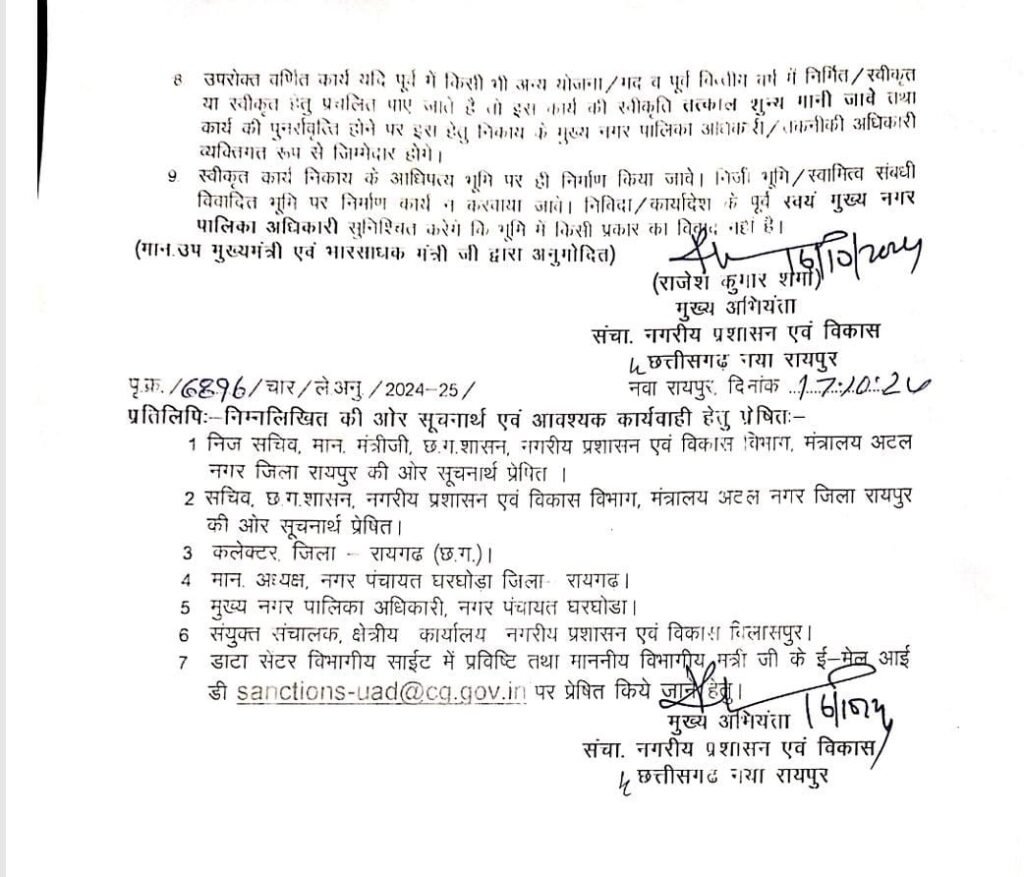 8. उपरोक्त वर्णित कार्य यदि पूर्व में किसी भी अन्य योजना/मद व पूर्व वित्तीय वर्ष में निर्मित/स्वीकृत
या स्वीकृत हेतु प्रचलित पाए जाते है तो इस कार्य की स्वीकृति तत्काल शुन्य मानी जावे तथा
कार्य की पुनर्रावृत्ति होने पर इस हेतु निकाय के मुख्य नगर पालिका अधिकारी/तकनीकी अधिकारी
व्यक्तिगत रूप से जिम्मेदार होगे।
9. स्वीकृत कार्य निकाय के आधिपत्य भूमि पर ही निर्माण किया जावे। निजी भूमि/स्वामित्व संबंधी
विवादित भूमि पर निर्माण कार्य न करवाया जावे। निविदा/कार्यादेश के पूर्व स्वयं मुख्य नगर
पालिका अधिकारी सुनिश्चित करेगे कि भूमि में किसी प्रकार का विवाद नहीं है।
(मान.उप मुख्यमंत्री एवं भारसाधक मंत्री जी द्वारा अनुमोदित)
16/10/2024
(राजेश कुमार शर्मा)
मुख्य अभियंता
संचा. नगरीय प्रशासन एवं विकास
छत्तीसगढ़ नया रायपुर
पृ.क्र./6896/चार/ले.अनु./2024-25/
नवा रायपुर, दिनांक 17.10.24
प्रतिलिपिः–निम्नलिखित की ओर सूचनार्थ एवं आवश्यक कार्यवाही हेतु प्रेषितः–
1 निज सचिव, मान. मंत्रीजी, छ.ग.शासन, नगरीय प्रशासन एवं विकास विभाग, मंत्रालय अटल
नगर जिला रायपुर की ओर सूचनार्थ प्रेषित ।
2 सचिव, छ.ग.शासन, नगरीय प्रशासन एवं विकास विभाग, मंत्रालय अटल नगर जिला रायपुर
की ओर सूचनार्थ प्रेषित।
3 कलेक्टर, जिला – रायगढ (छ.ग.)।
4 मान. अध्यक्ष, नगर पंचायत घरघोडा जिला– रायगढ।
5 मुख्य नगर पालिका अधिकारी, नगर पंचायत घरघोडा।
6 संयुक्त संचालक, क्षेत्रीय कार्यालय नगरीय प्रशासन एवं विकास बिलासपुर।
7 डाटा सेंटर विभागीय साईट में प्रविष्टि तथा माननीय विभागीय मंत्री जी के ई–मेल आई
डी sanctions-uad@cg.gov.in पर प्रेषित किये जाने हेतु।
16/10/24
मुख्य अभियंता
संचा. नगरीय प्रशासन एवं विकास
छत्तीसगढ नया रायपुर